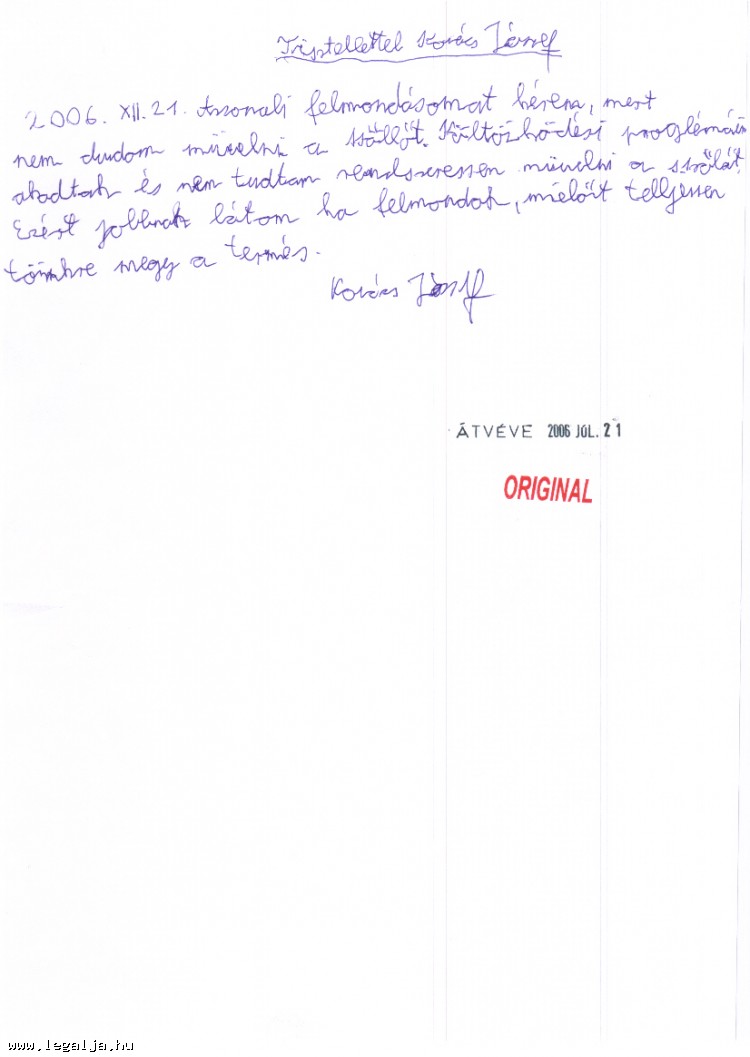 Trisztellettel Kovács József
2006. XII. 21. Azonali felmondásomat kérem, mert
nem dudom művelni a szőllőt. Költözködési proglémáim
akadtak és nem tudtam rendszeressen művelni a szőlőt.
Ezért jobbnak látom ha felmondok, mielőtt telljessen
tönkre megy a termés.
Kovács József
ÁTVÉVE 2006 JÚL. 21
ORIGINAL
www.legalja.hu